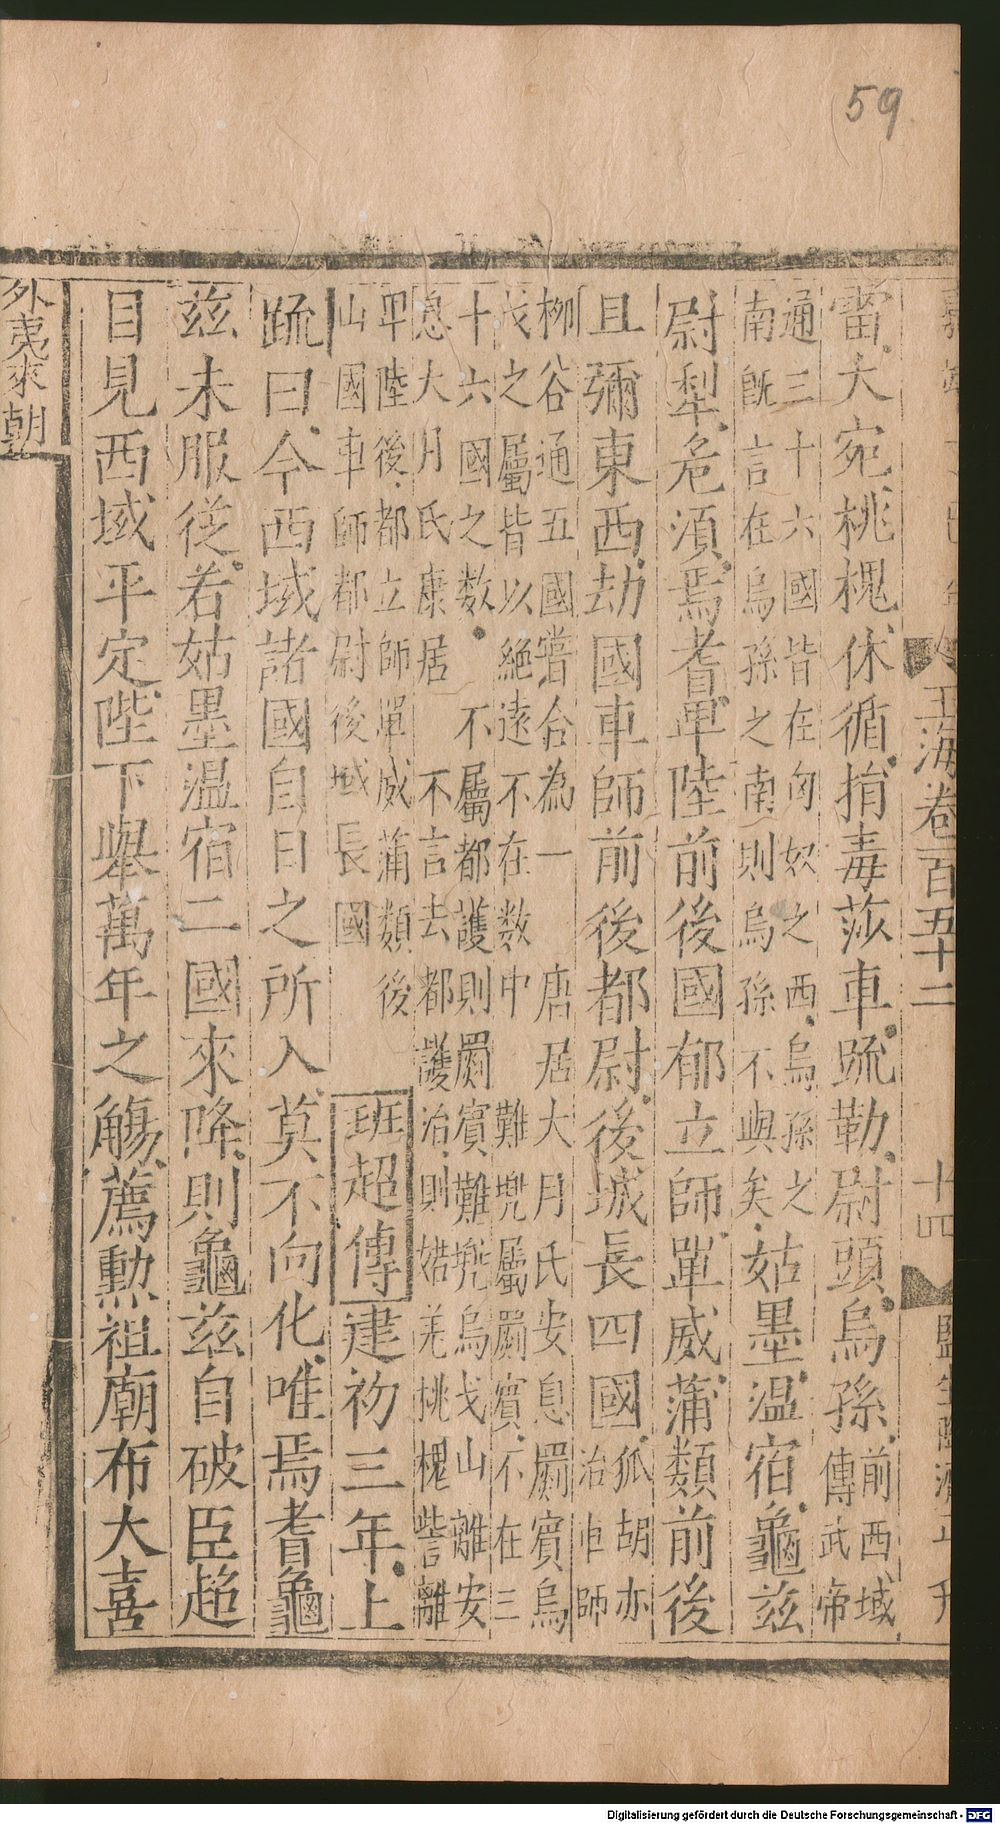 59
玉海卷一百五十二
十四
雷大宛桃槐休循捐毒莎車疏勒尉頭烏孫前西域
傳武帝
通三十六國皆在匈奴之西烏孫之
南旣言在烏孫之南則烏孫不與矣姑墨溫宿龜茲
尉犁危須焉耆卑陸前後國郁立師單威蒲類前後
且彌東西劫國車師前後都尉後城長四國狐胡亦
治車師
柳谷通五國嘗合為一唐居大月氏安息罽賓烏
戈之屬皆以絕遠不在數中難兜屬罽賓不在三
十六國之數不屬都護則罽賓難兜烏戈山離安
息大月氏康居不言去都護治則婼羌桃槐訾離
卑陸後都立師單威蒲類後
山國車師都尉後域長國班超傳建初三年上
疏曰今西域諸國自日之所入莫不向化唯焉耆龜
茲未服從若姑墨溫宿二國來降則龜茲自破臣超
目見西域平定陛下舉萬年之觴薦勳祖廟布大喜
外夷來朝
Digitalisierung gefördert durch die Deutsche Forschungsgemeinschaft - DFG